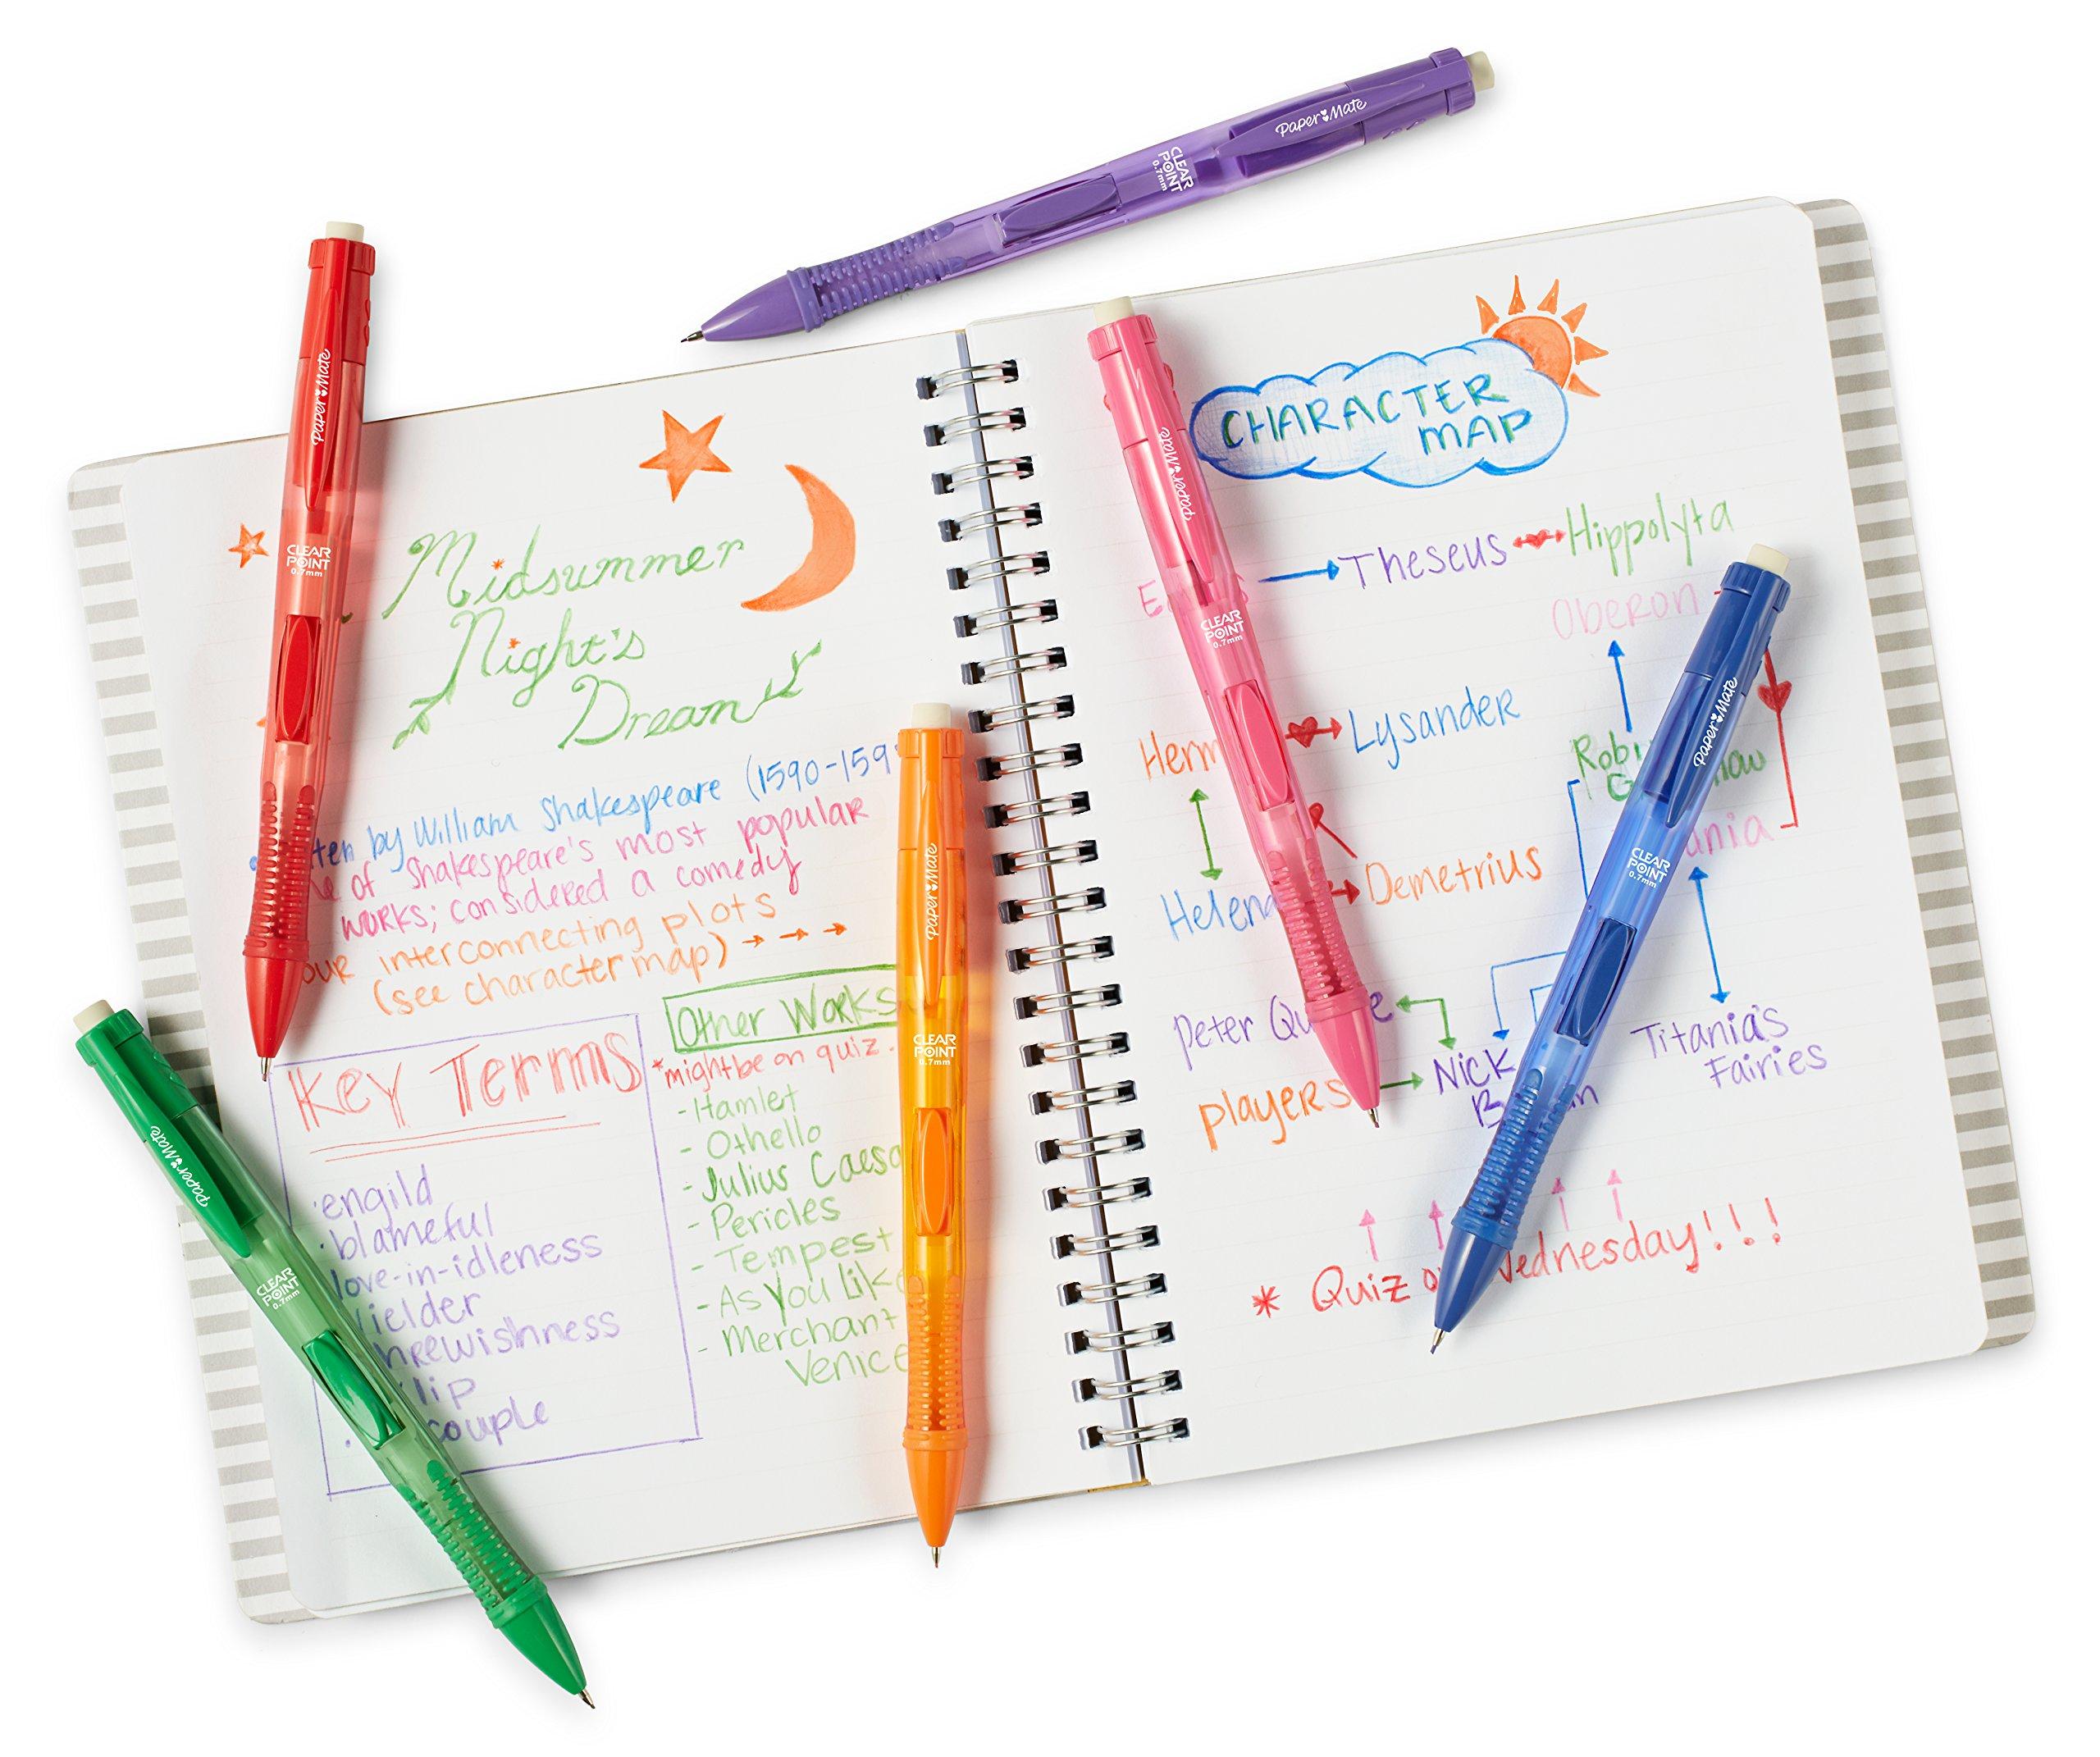 Paper Mate
CLEAR
POINT
0.7mm
Paper Mate
CLEAR
POINT
0.7mm
Midsummer
Night's
Dream
by William Shakespeare (1590-159
of Shakespeare's most popular
works; considered a comedy
interconnecting plots
(see character map)
Key Terms
engild
blameful
love-in-idleness
couple
Other Works
*might be on quiz.
- Hamlet
- Othello
- Julius Caesa
- Pericles
- Tempest
- As You Like
- Merchant
Venice
Paper Mate
CLEAR
POINT
0.7mm
Paper Mate
CLEAR
POINT
0.7mm
CHARACTER
MAP
Theseus Hippolyta
Oberon
Herm Lysander
Helena Demetrius
Peter Qu e
players Nick
Titania's
Fairies
* Quiz o Wednesday!!!
Paper Mate
CLEAR
POINT
0.7mm
Paper Mate
CLEAR
POINT
0.7mm